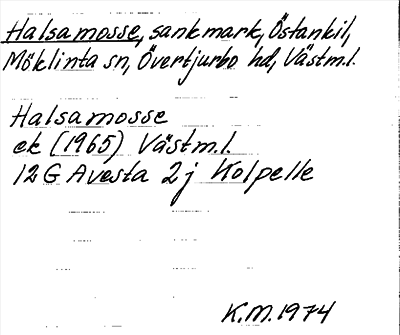 Halsamosse, sankmark, Östankil,
Möklinta sn, Övertjurbo hd, Västm.l.
Halsamosse
ek (1965) Västm.l.
12G Avesta 2j Kolpelle
K.M. 1974